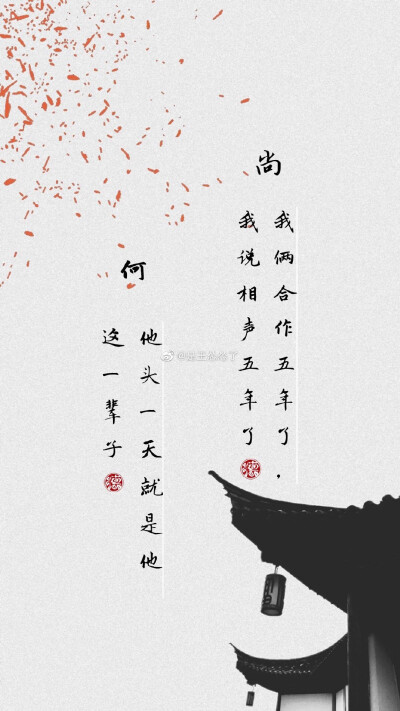 尚
我俩合作五年了，
我说相声五年了
何
他头一天就是他
这一辈子
德
德